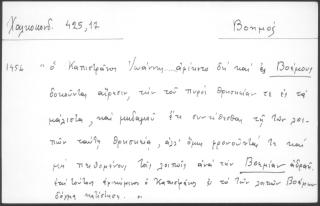 Χαλκοκονδ. 425,17
Βοημός
1454 " ὁ Καπιστράνος Ἰωάννης... ἀφίκετο δὴ καὶ ἐς Βοέμους
δοκοῦντας αἵρεσιν, τὴν τοῦ πυρὸς θρησκείαν τε ἐς τὰ
μάλιστα, καὶ μηδαμοῦ ἔτι συντίθεσθαι τῇ τῶν λοι-
πῶν ταύτῃ θρησκείᾳ, ἀλλ' ὅμως φρονοῦντάς τε καὶ
μὴ πειθομένους τοῖς λοιποῖς ἀνὰ τὴν Βοεμίαν
ἐπὶ τούτους ἀφικόμενος ὁ Καπιστράνος ἐς τὸ τῶν λοιπῶν Βοέμων
δόγμα κατέστησε. "